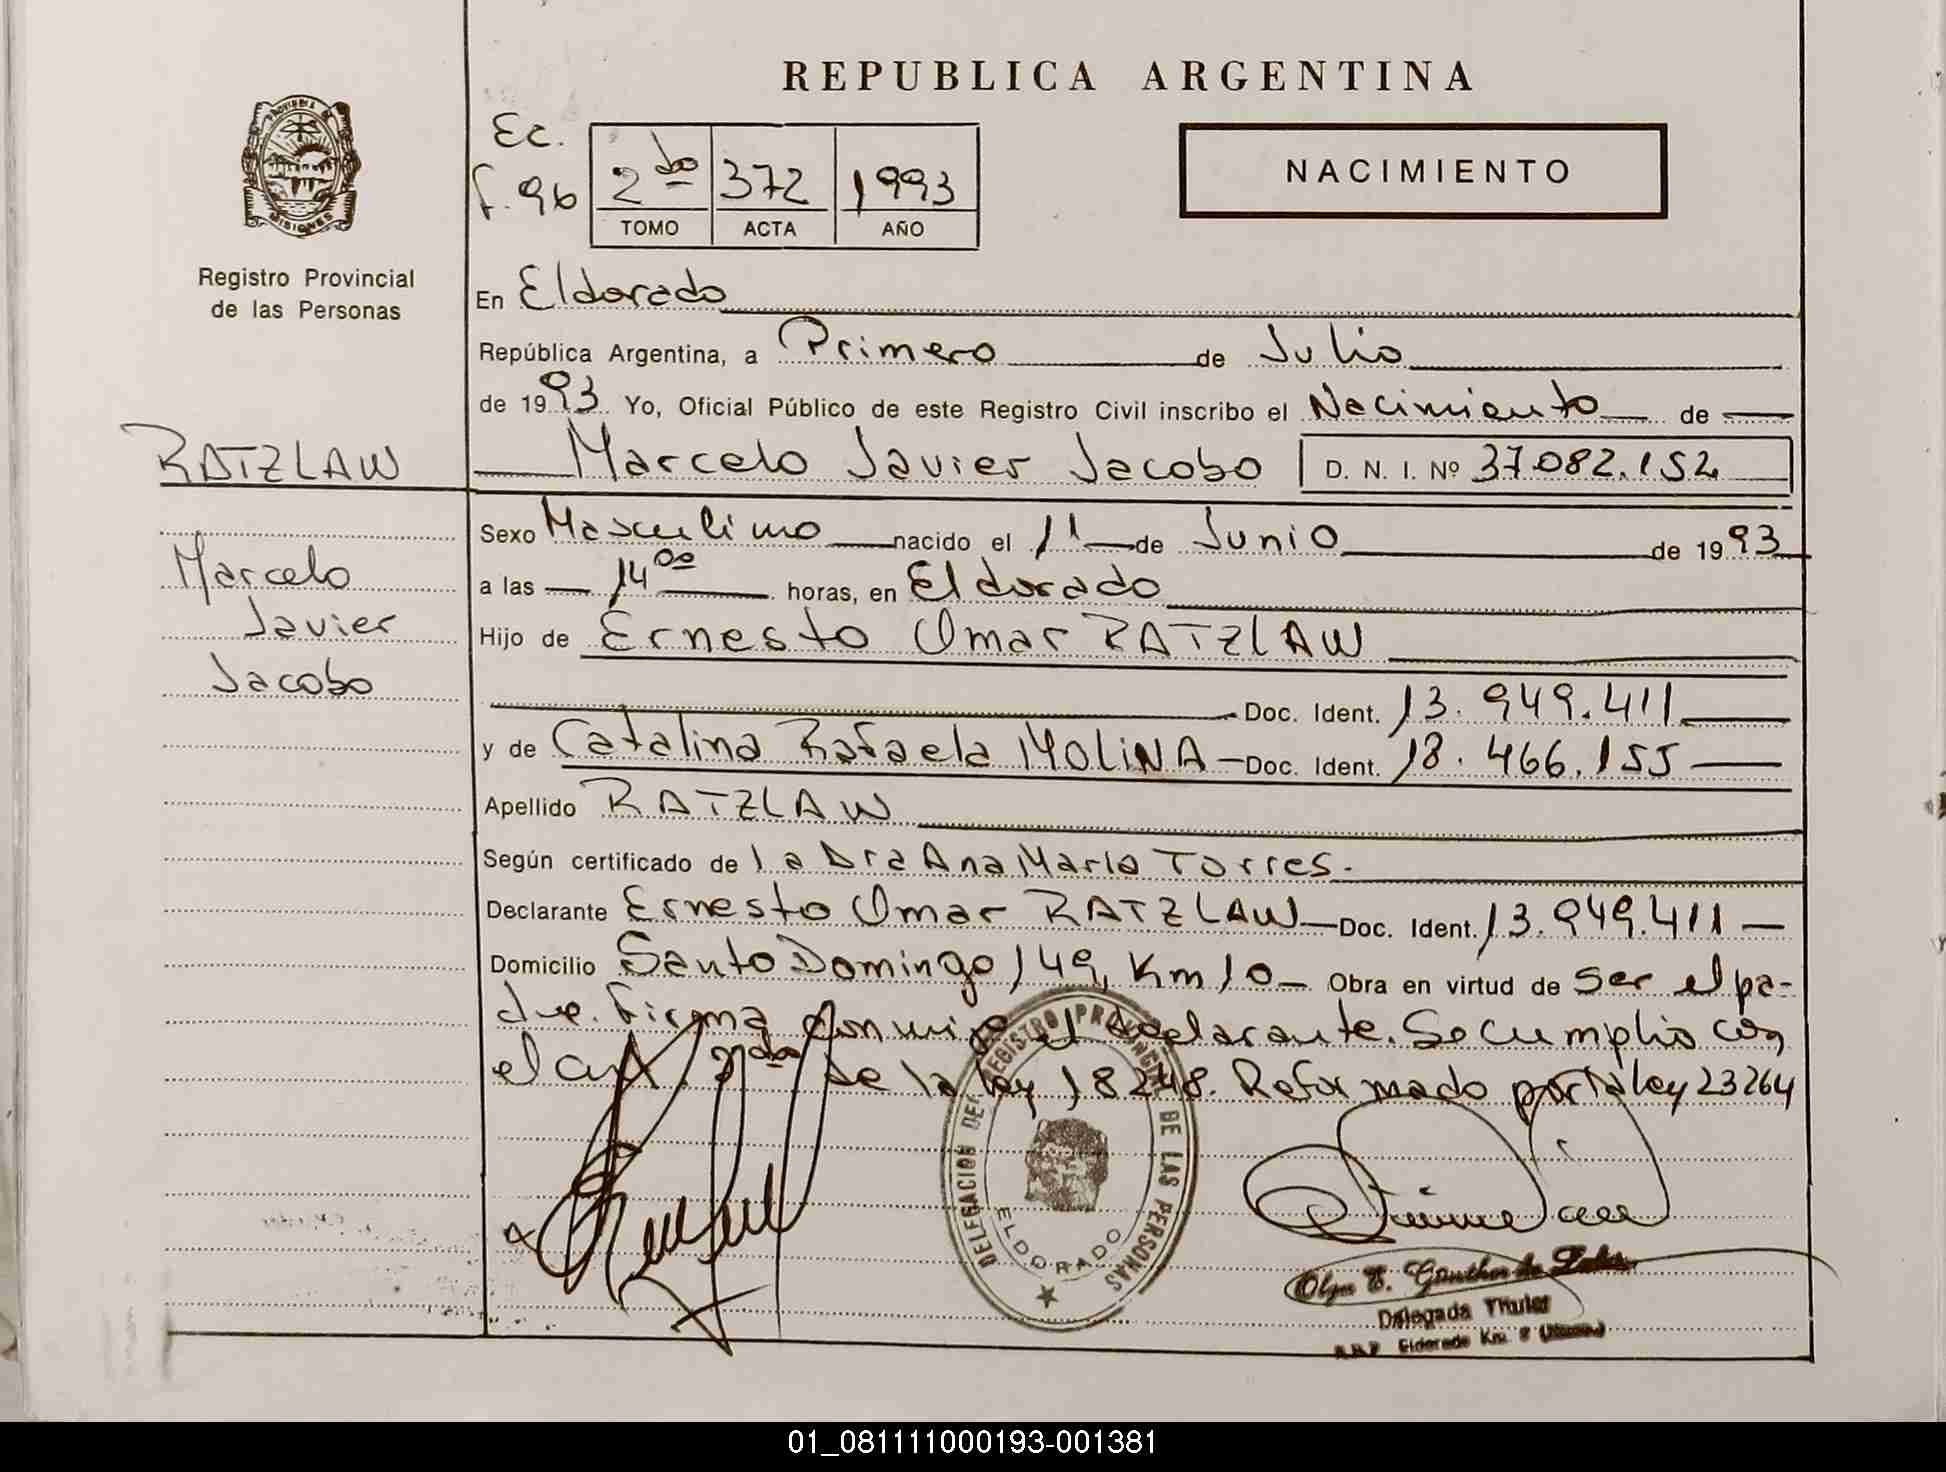 REPUBLICA ARGENTINA
PROVINCIA DE
MISIONES
Registro Provincial
de las Personas
Ec.
f. 96
2do 372 1993
TOMO ACTA AÑO
NACIMIENTO
En Eldorado
República Argentina, a Primero de Julio
de 1993 Yo, Oficial Público de este Registro Civil inscribo el Nacimiento de
RATZLAW
Marcelo Javier Jacobo D. N. I. Nº 37.082.152
Marcelo
Javier
Jacobo
Sexo Masculino nacido el 11 de Junio de 1993
a las 14 00 horas, en Eldorado
Hijo de Ernesto Omar RATZLAW
Doc. Ident. 13.949.411
y de Catalina Rafaela MOLINA - Doc. Ident. 18.466.155
Apellido RATZLAW
Según certificado de la Dra Ana María Torres.
Declarante Ernesto Omar RATZLAW - Doc. Ident. 13.949.411
Domicilio Santo Domingo 149, Km 10 - Obra en virtud de ser el pa-
dre. Firma conmigo el declarante. Se cumplio con
el art. 2do de la ley 18248. Reformado por la ley 23264
DELEGACIÓN DEL REGISTRO PROVINCIAL DE LAS PERSONAS
ELDORADO
Olga E. Gunther de
Delegada Titular
Eldorado Km. 9
01_081111000193-001381